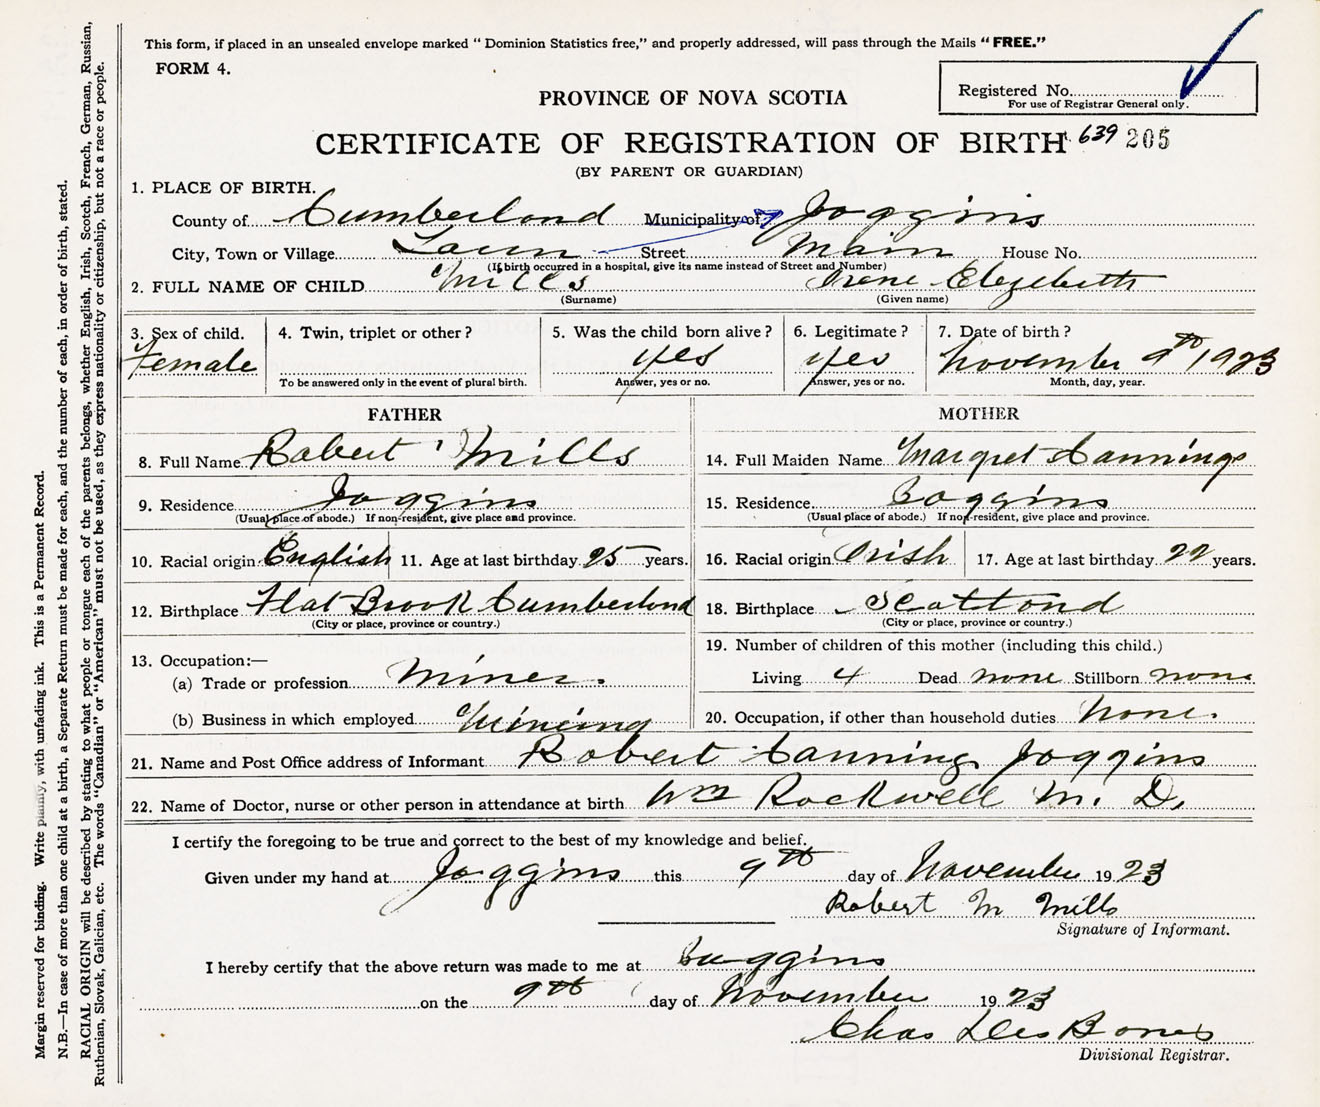 This form, if placed in an unsealed envelope marked “ Dominion Statistics free,” and properly addressed, will pass through the Mails “ FREE.”
FORM 4.
Registered No.
For use of Registrar General only.
PROVINCE OF NOVA SCOTIA
CERTIFICATE OF REGISTRATION OF BIRTH 639 205
(BY PARENT OR GUARDIAN)
1. PLACE OF BIRTH.
County of Cumberland Municipality of Joggins
City, Town or Village Town Street Main House No.
(If birth occurred in a hospital, give its name instead of Street and Number)
2. FULL NAME OF CHILD Mills Irene Elezebeth
(Surname) (Given name)
3. Sex of child. 4. Twin, triplet or other ? 5. Was the child born alive ? 6. Legitimate ? 7. Date of birth ?
Female yes yes November 9th 1923
To be answered only in the event of plural birth. Answer, yes or no. Answer, yes or no. Month, day, year.
FATHER MOTHER
8. Full Name Robert Mills 14. Full Maiden Name Margret Cannings
9. Residence Joggins 15. Residence Joggins
(Usual place of abode.) If non-resident, give place and province. (Usual place of abode.) If not-resident, give place and province.
10. Racial origin English 11. Age at last birthday 25 years. 16. Racial origin Irish 17. Age at last birthday 22 years.
12. Birthplace Flat Brook Cumberland 18. Birthplace Scotland
(City or place, province or country.) (City or place, province or country.)
13. Occupation:— 19. Number of children of this mother (including this child.)
(a) Trade or profession Miner. Living 4 Dead none Stillborn none
(b) Business in which employed Mining 20. Occupation, if other than household duties None.
21. Name and Post Office address of Informant Robert Cannings Joggins
22. Name of Doctor, nurse or other person in attendance at birth Wm Rockwell M. D.
I certify the foregoing to be true and correct to the best of my knowledge and belief.
Given under my hand at Joggins this 9th day of November 1923
Robert M Mills
Signature of Informant.
I hereby certify that the above return was made to me at Joggins
on the 9th day of November 1923
Chas Des
Divisional Registrar.
Margin reserved for binding. Write plainly, with unfading ink. This is a Permanent Record.
N.B.—In case of more than one child at a birth, a Separate Return must be made for each, and the number of each, in order of birth, stated.
RACIAL ORIGIN will be described by stating to what people or tongue each of the parents belongs, whether English, Irish, Scotch, French, German, Russian,
Ruthenian, Slovak, Galician, etc. The words “Canadian” or “American” must not be used, as they express nationality or citizenship, but not a race or people.